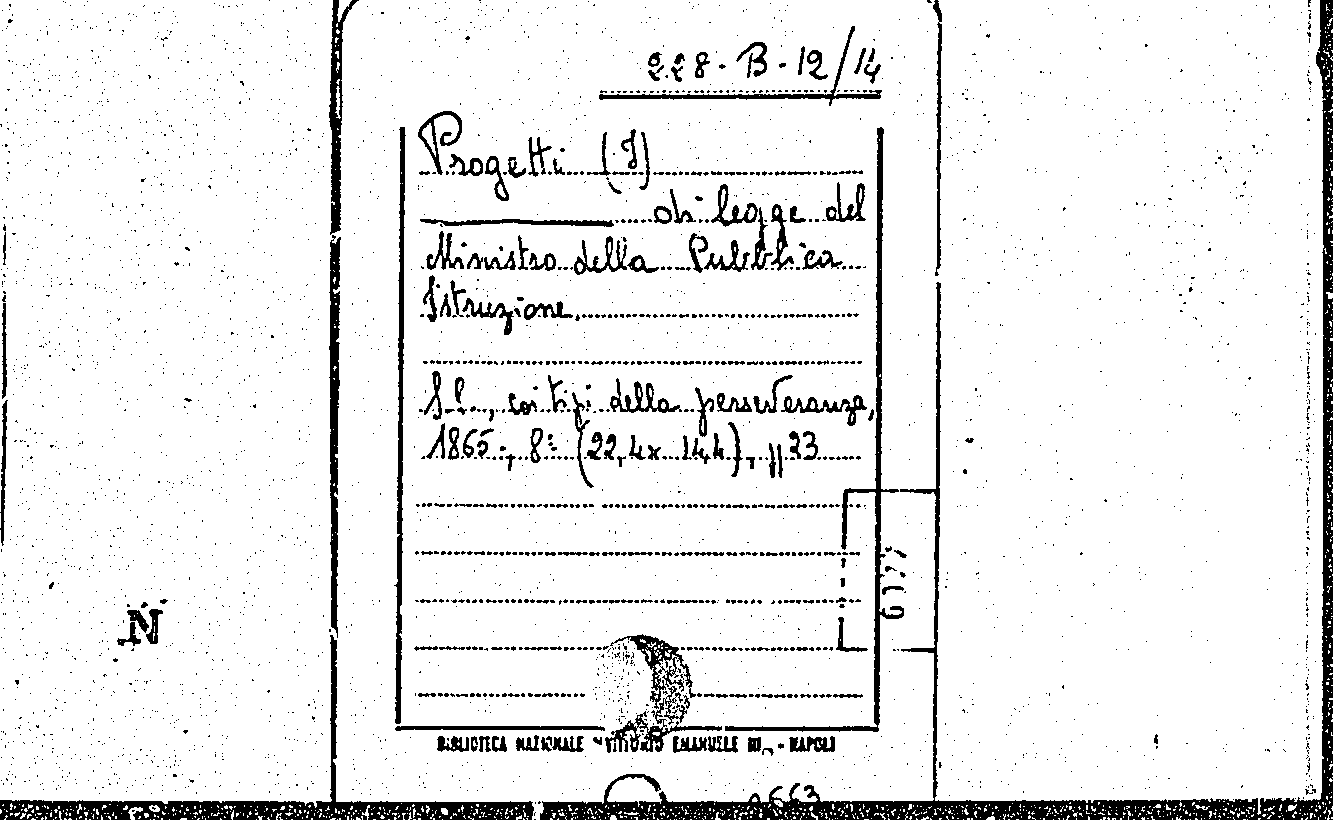 228-B-12/14
Progetti (I)
di legge del
Ministro della Pubblica
Istruzione.
S.l., coi tipi della perseveranza,
1865., 8° (22,4x 14,4), pp 23
6077
N
BIBLIOTECA NAZIONALE "VITTORIO EMANUELE III" - NAPOLI